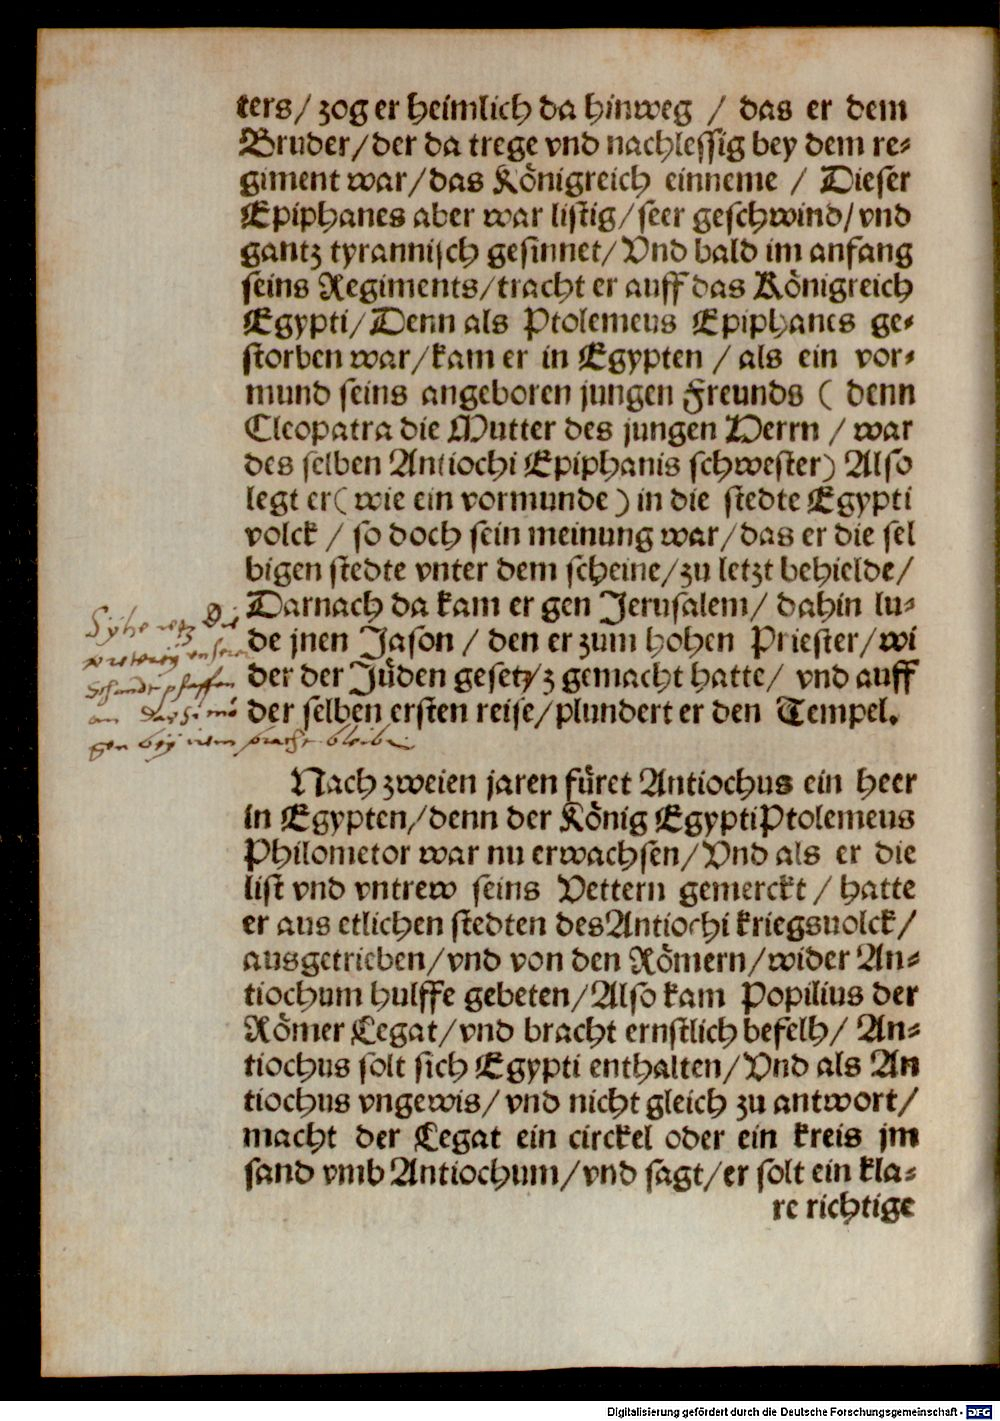 ters/ zog er heimlich da hinweg / das er dem
Bruder/der da trege vnd nachlessig bey dem re-
giment war/das Königreich einneme / Dieser
Epiphanes aber war listig/seer geschwind/vnd
gantz tyrannisch gesinnet/Vnd bald im anfang
seins Regiments/tracht er auff das Königreich
Egypti/Denn als Ptolemeus Epiphanes ge-
storben war/kam er in Egypten / als ein vor-
mund seins angeboren jungen Freunds ( denn
Cleopatra die Mutter des jungen Herrn / war
des selben Antiochi Epiphanis schwester) Also
legt er( wie ein vormunde ) in die stedte Egypti
volck / so doch sein meinung war/das er die sel
bigen stedte vnter dem scheine/zu letzt behielde/
Darnach da kam er gen Jerusalem/ dahin lu-
de jnen Jason / den er zum hohen Priester/wi
der der Jüden gesetz/z gemacht hatte/ vnd auff
der selben ersten reise/plundert er den Tempel.
die
pfaffen
an
gen bey bleibe
Nach zweien jaren füret Antiochus ein heer
in Egypten/denn der König EgyptiPtolemeus
Philometor war nu erwachsen/Vnd als er die
list vnd vntrew seins Vettern gemerckt / hatte
er aus etlichen stedten desAntiochi kriegsuolck/
ausgetrieben/vnd von den Römern/wider An-
tiochum hulffe gebeten/Also kam Popilius der
Römer Legat/vnd bracht ernstlich befelh/ An-
tiochus solt sich Egypti enthalten/Vnd als An
tiochus vngewis/vnd nicht gleich zu antwort/
macht der Legat ein circkel oder ein kreis jm
sand vmb Antiochum/vnd sagt/er solt ein kla-
re richtige
Digitalisierung gefördert durch die Deutsche Forschungsgemeinschaft - DFG